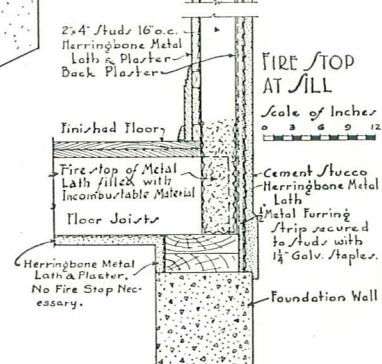 2"x4" Studs 16"o.c.
Herringbone Metal
Lath & Plaster
Back Plaster
FIRE STOP
AT SILL
Scale of Inches
0 3 6 9 12
Finished Floor
Firestop of Metal
Lath filled with
Incombustable Material
Floor Joists
Cement Stucco
Herringbone Metal
Lath
½" Metal Furring
Strip secured
to Studs with
1¼" Galv. Staples.
Herringbone Metal
Lath & Plaster.
No Fire Stop Nec-
essary.
Foundation Wall